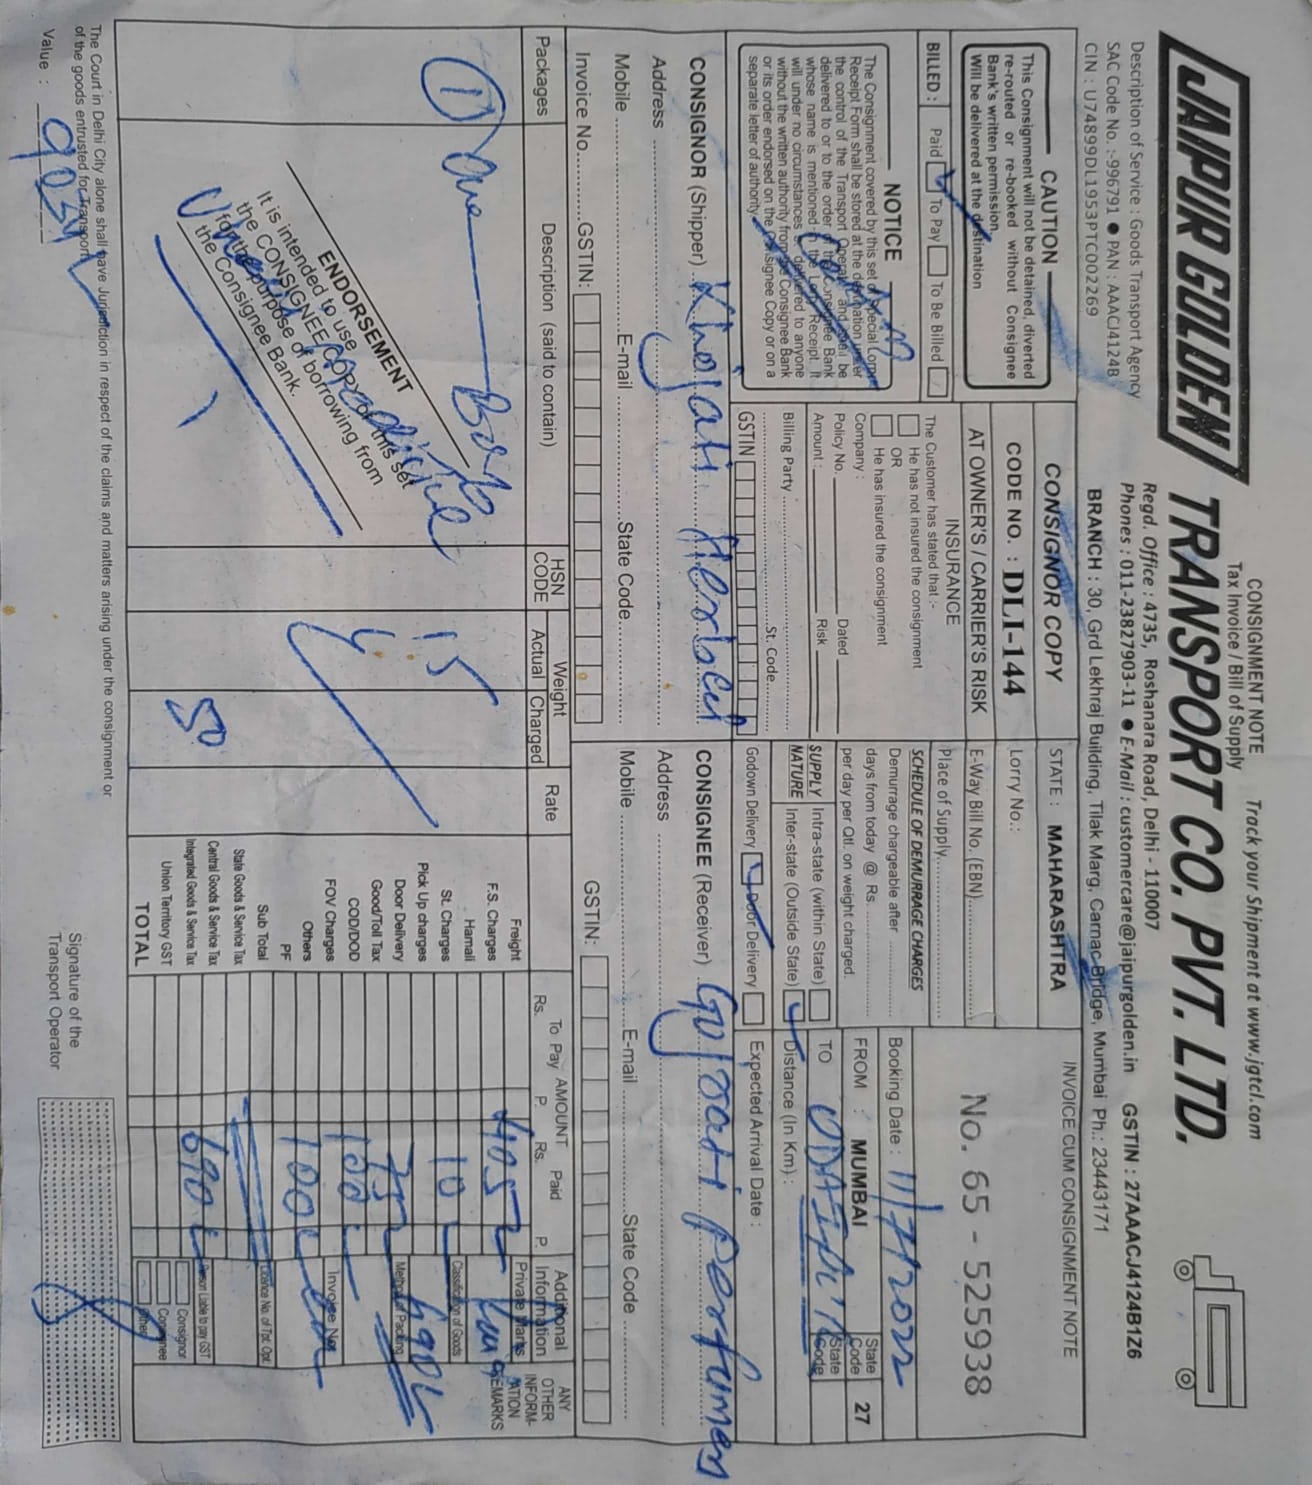 CONSIGNMENT NOTE
Tax Invoice / Bill of Supply
Track your Shipment at www.jgtcl.com
JAIPUR GOLDEN TRANSPORT CO. PVT. LTD.
Regd. Office : 4735, Roshanara Road, Delhi - 110007
Description of Service : Goods Transport Agency
Phones : 011-23827903-11 ● E-Mail : customercare@jaipurgolden.in GSTIN : 27AAACJ4124B1Z6
SAC Code No. :-996791 ● PAN : AAACJ4124B
CIN : U74899DL1953PTC002269
BRANCH : 30, Grd Lekhraj Building, Tilak Marg, Carnac Bridge, Mumbai Ph.: 23443171
CAUTION
This Consignment will not be detained, diverted
re-routed or re-booked without Consignee
Bank's written permission.
Will be delivered at the destination
BILLED : Paid To Pay To Be Billed
NOTICE
The Consignment covered by this set of Special Lorry
Receipt Form shall be stored at the destination under
the control of the Transport Operator and shall be
delivered to or to the order of the Consignee Bank
whose name is mentioned in the Lorry Receipt. It
will under no circumstances be delivered to anyone
without the written authority from the Consignee Bank
or its order endorsed on the Consignee Copy or on a
separate letter of authority.
CONSIGNOR COPY
CODE NO. : DLI-144
AT OWNER'S / CARRIER'S RISK
INSURANCE
The Customer has stated that :-
He has not insured the consignment
OR
He has insured the consignment
Company :
Policy No. Dated
Amount : Risk
Billing Party
St. Code
GSTIN
STATE : MAHARASHTRA
Lorry No.:
E-Way Bill No. (EBN)
Place of Supply
SCHEDULE OF DEMURRAGE CHARGES
Demurrage chargeable after
days from today @ Rs.
per day per Qtl. on weight charged.
SUPPLY NATURE
Intra-state (within State)
Inter-state (Outside State)
Godown Delivery Door Delivery
INVOICE CUM CONSIGNMENT NOTE
No. 65 - 525938
Booking Date : 11/7/2022
FROM : MUMBAI State Code 27
TO UDAIPUR State Code
Distance (In Km) :
Expected Arrival Date :
CONSIGNOR (Shipper) Khejati Herbal
Address
Mobile E-mail State Code
Invoice No. GSTIN:
CONSIGNEE (Receiver) Gujrati Perfumes
Address
Mobile E-mail State Code
GSTIN:
Packages
Description (said to contain)
HSN CODE
Weight
Actual Charged
Rate
AMOUNT
To Pay Paid
Rs. P. Rs. P.
Additional Information
ANY OTHER INFORMATION REMARKS
1 One Box
15
50
ENDORSEMENT
It is intended to use
the CONSIGNEE COPY of this set
for the purpose of borrowing from
the Consignee Bank.
Freight 405
F.S. Charges
Hamali
St. Charges 10
Pick Up charges
Door Delivery 75
Good/Toll Tax
COD/DOD 100
FOV Charges
Others 100
PF
Sub Total
State Goods & Service Tax
Central Goods & Service Tax
Integrated Goods & Service Tax 690
Union Territory GST
TOTAL
Private Marks
Classification of Goods
Method of Packing
690
Invoice No.
Licence No. of Tpt. Opt.
Person Liable to pay GST
Consignor
Consignee
Other
The Court in Delhi City alone shall have Jurisdiction in respect of the claims and matters arising under the consignment or
of the goods entrusted for Transport.
Value :
Signature of the
Transport Operator